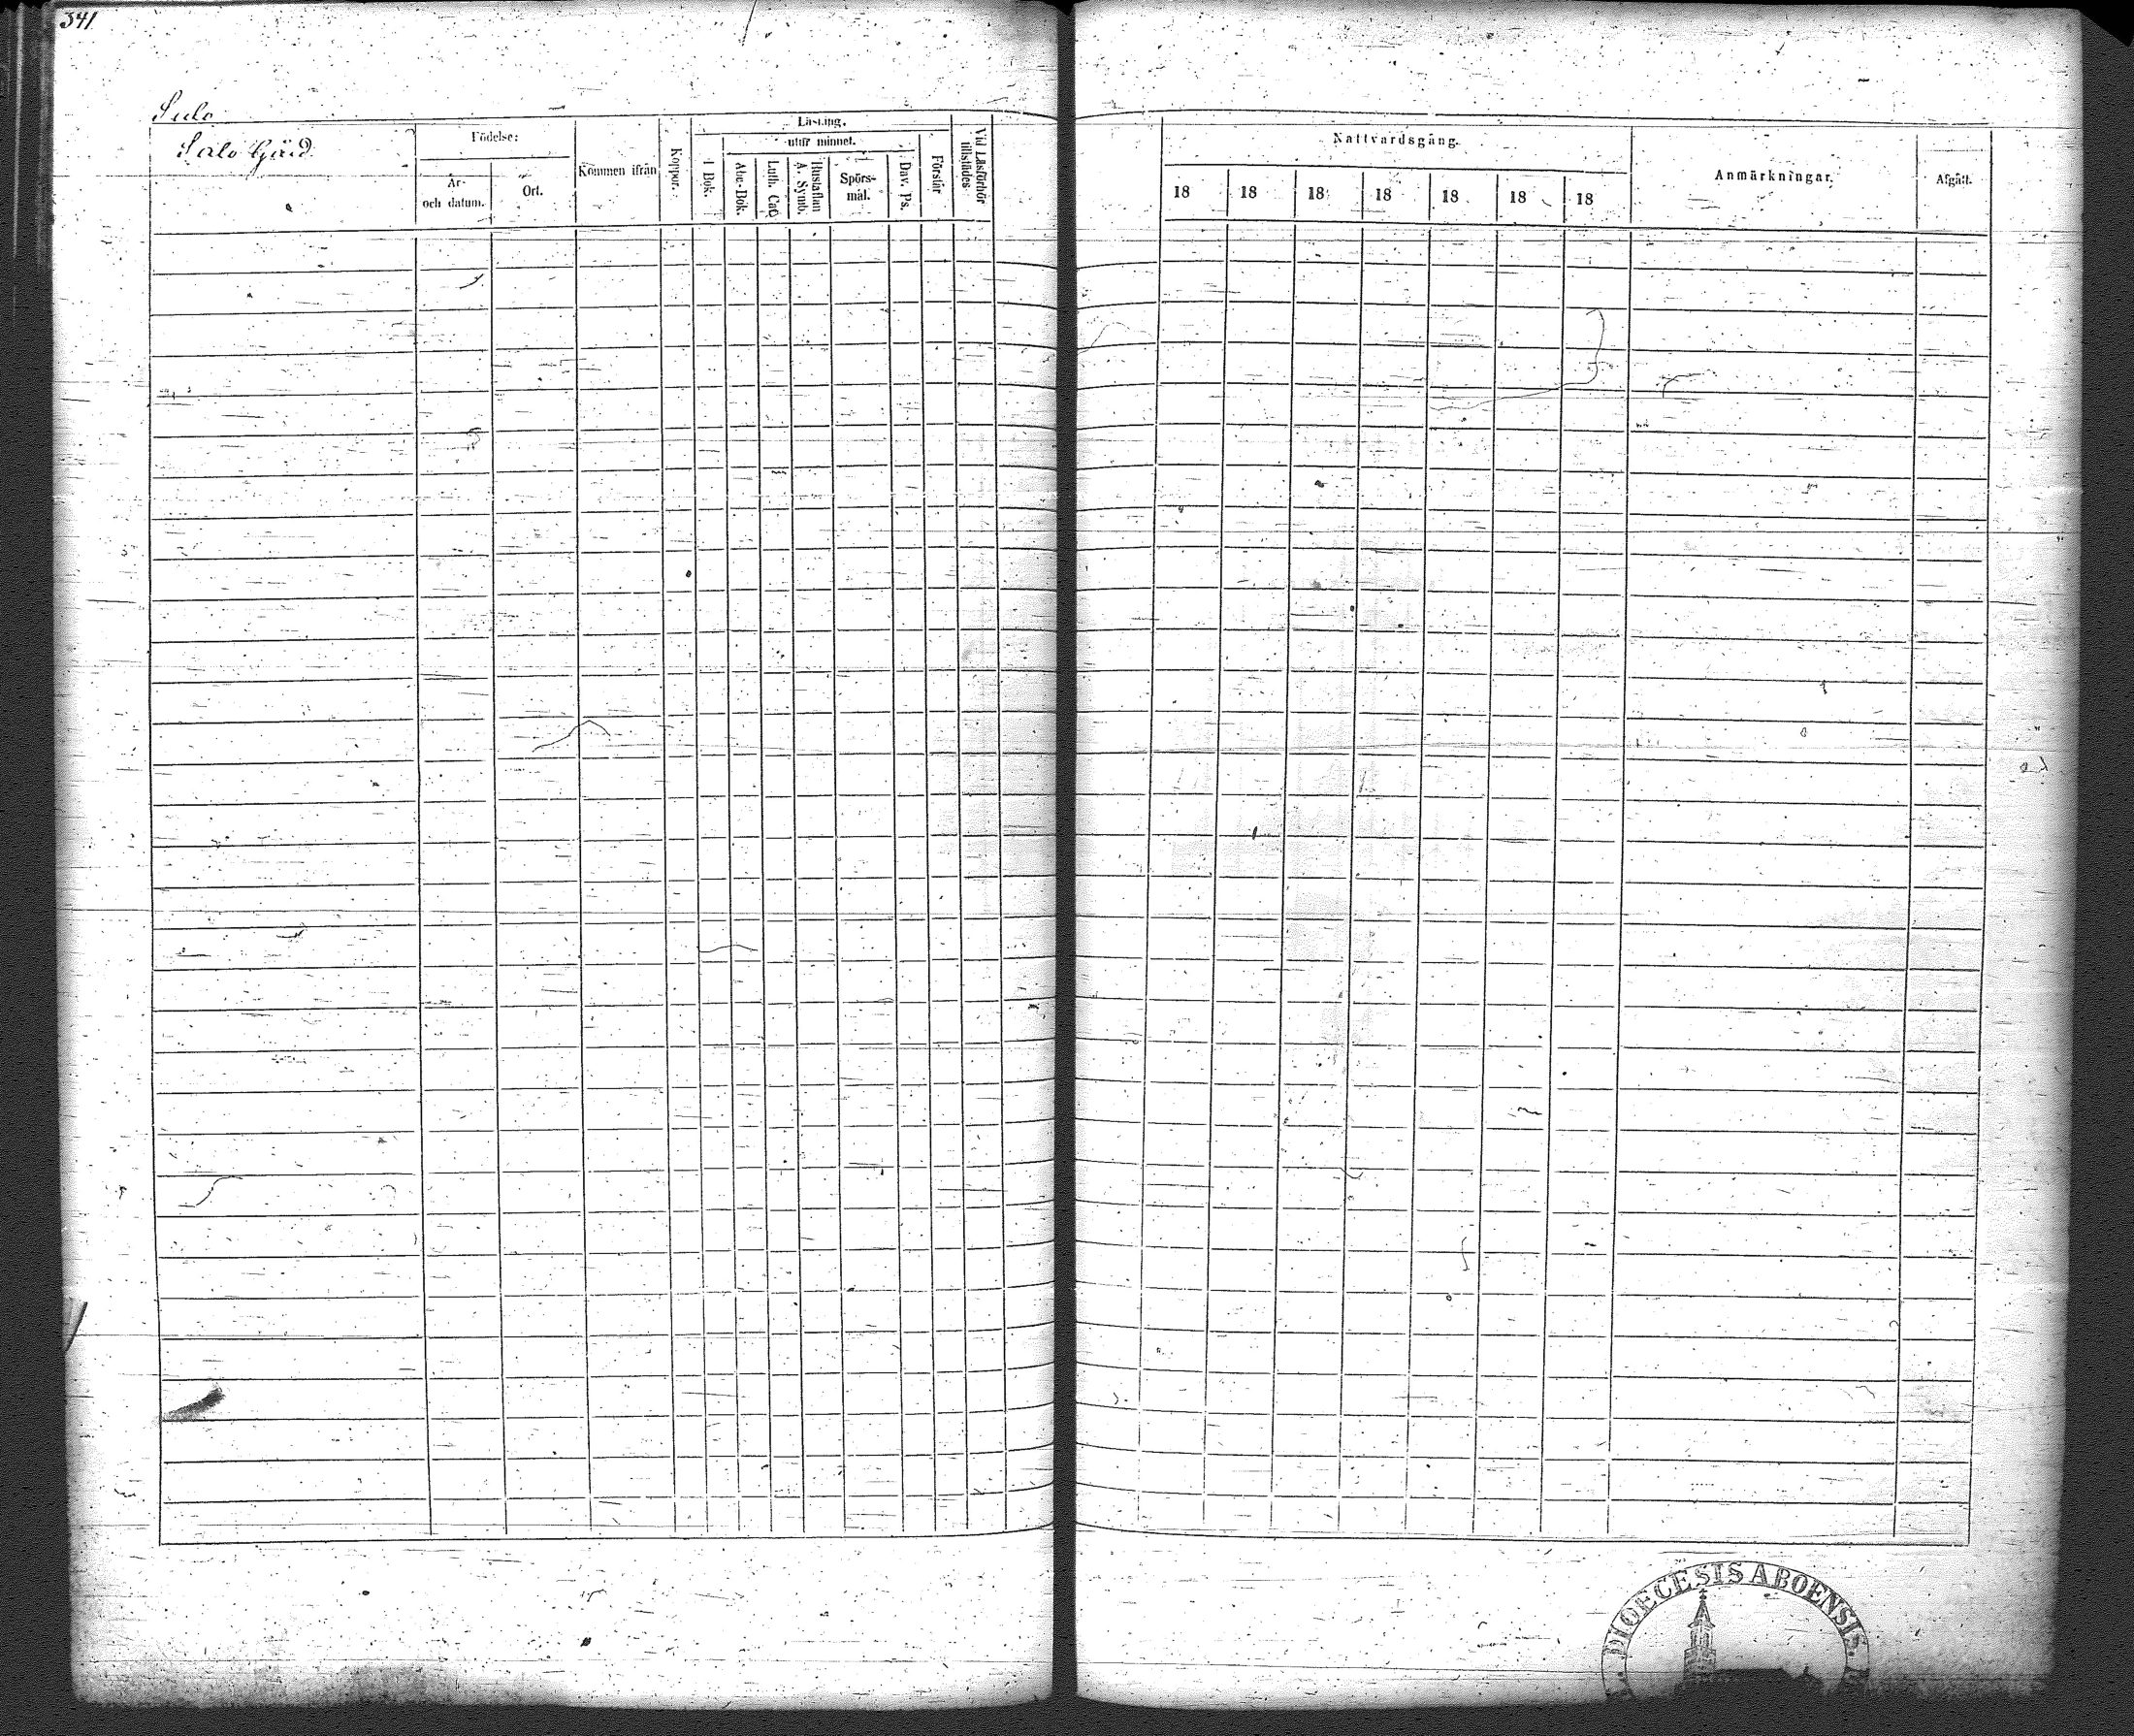 341
Salo
Salo Gård
Födelse:
År-
och datum.
Ort.
Kommen ifrån
Koppor.
Läsning.
I Bok.
utur minnet.
Abc-Bok.
Luth. Cat.
Hustaflan
A. Symb.
Spörs-
mål.
Dav. Ps.
Förstår
Vid Läsförhör
tillstädes
Nattvardsgång.
18 18 18 18 18 18 18
Anmärkningar.
Afgått.
DIOECESIS ABOENSIS.